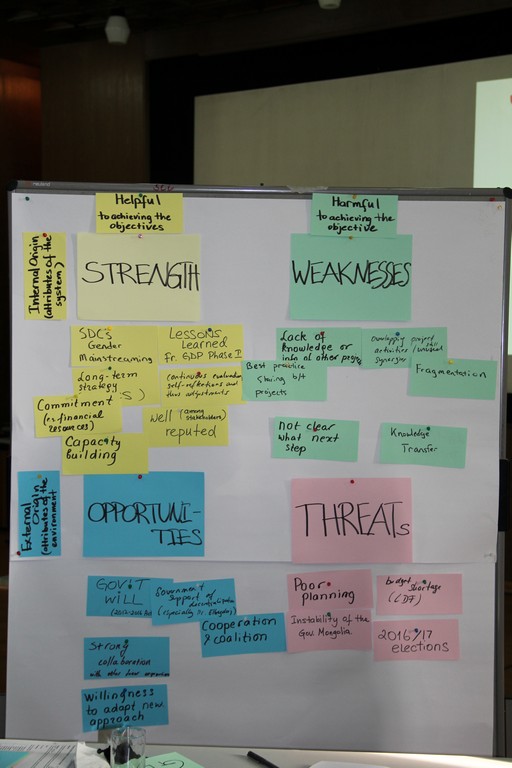 Helpful
to achieving the
objectives
Harmful
to achieving the
objective
Internal Origin
(attributes of the
system)
STRENGTH
WEAKNESSES
SDC's
Gender
Mainstreaming
LESSONS
Learned
fr. GDP PHASE I
Long-term
strategy
continuous evaluation
self-reflections and
thus adjustments
Commitment
financial
resources)
well (among
stakeholders)
reputed
Capacity
building
Lack of
knowledge or
info of other
Overlapping project
activities
synergies
Best practice
sharing b/t
projects
Fragmentation
not clear
what next
step
Knowledge
Transfer
External Origin
(attributes of the
environment
OPPORTUNI-
TIES
THREATs
GOV'T
WILL
Government
support of decentralization
(especially
Cooperation
& coalition
Strong
collaboration
with other
Willingness
to adapt new
approach
Poor
planning
budget shortage
(LDF)
Instability of the
Gov. Mongolia
2016/17
elections